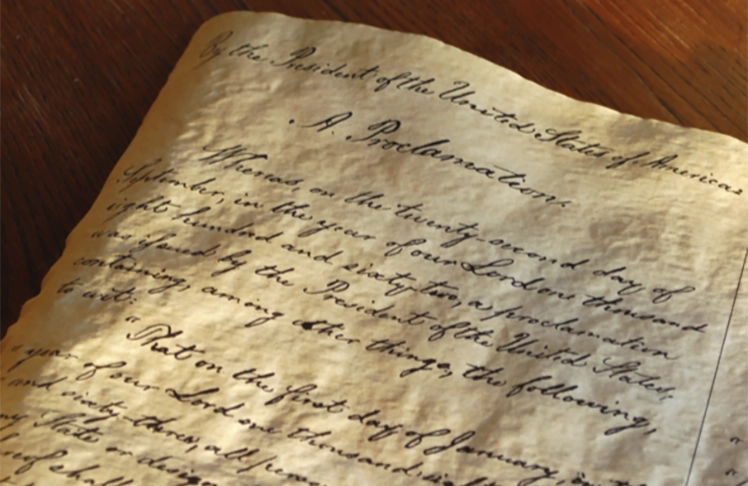 By the President of the United States of America:
A Proclamation.
Whereas, on the twenty-second day of
September, in the year of our Lord one thousand
eight hundred and sixty two, a proclamation
was issued by the President of the United States,
containing, among other things, the following,
to wit:
"That on the first day of January, in the
"year of our Lord one thousand eight
and sixty-three, all persons
any State or desig